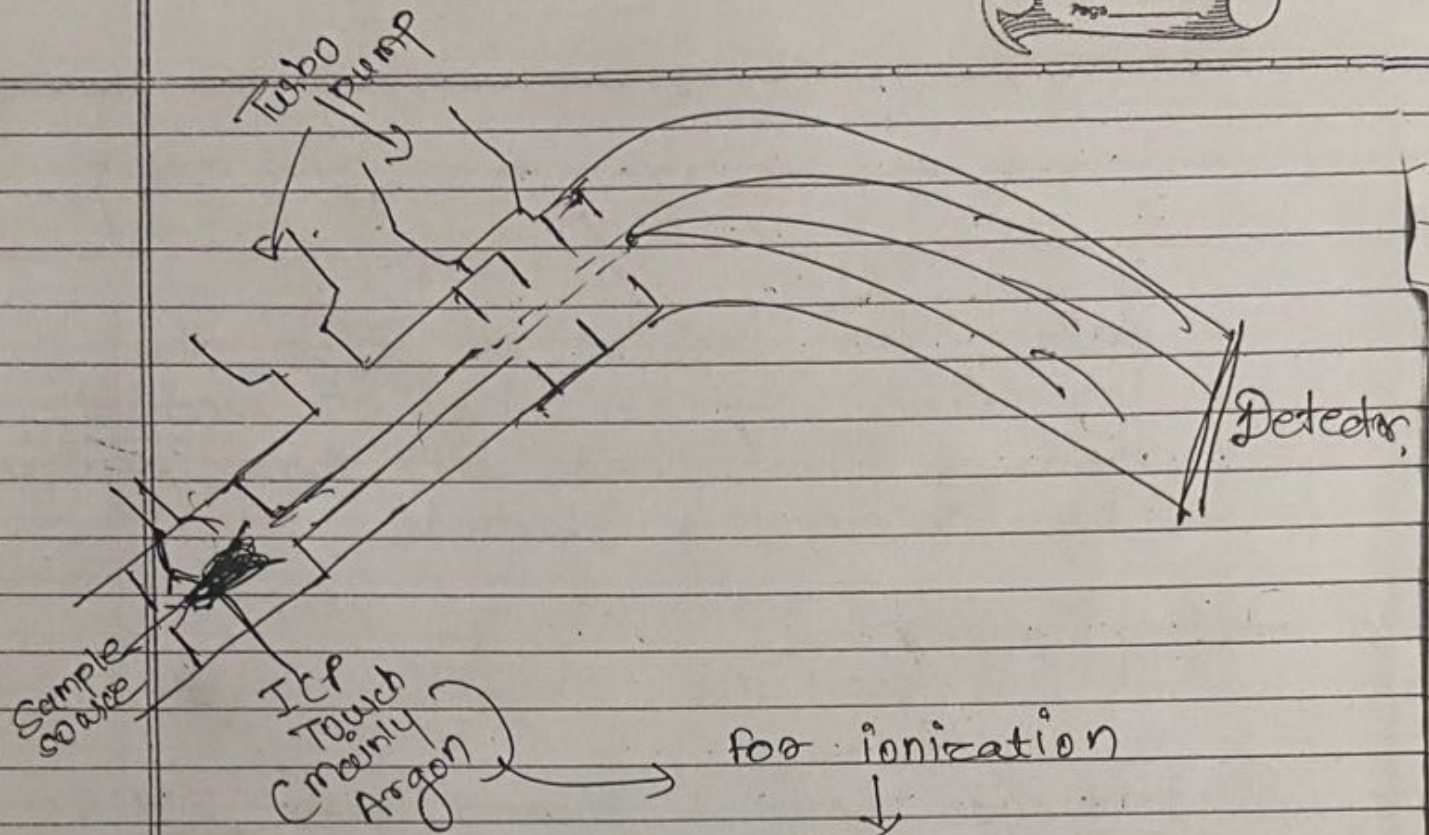 Page
Turbo
pump
Detector,
Sample
source
ICP
Touch
(mainly
Argon
for ionization